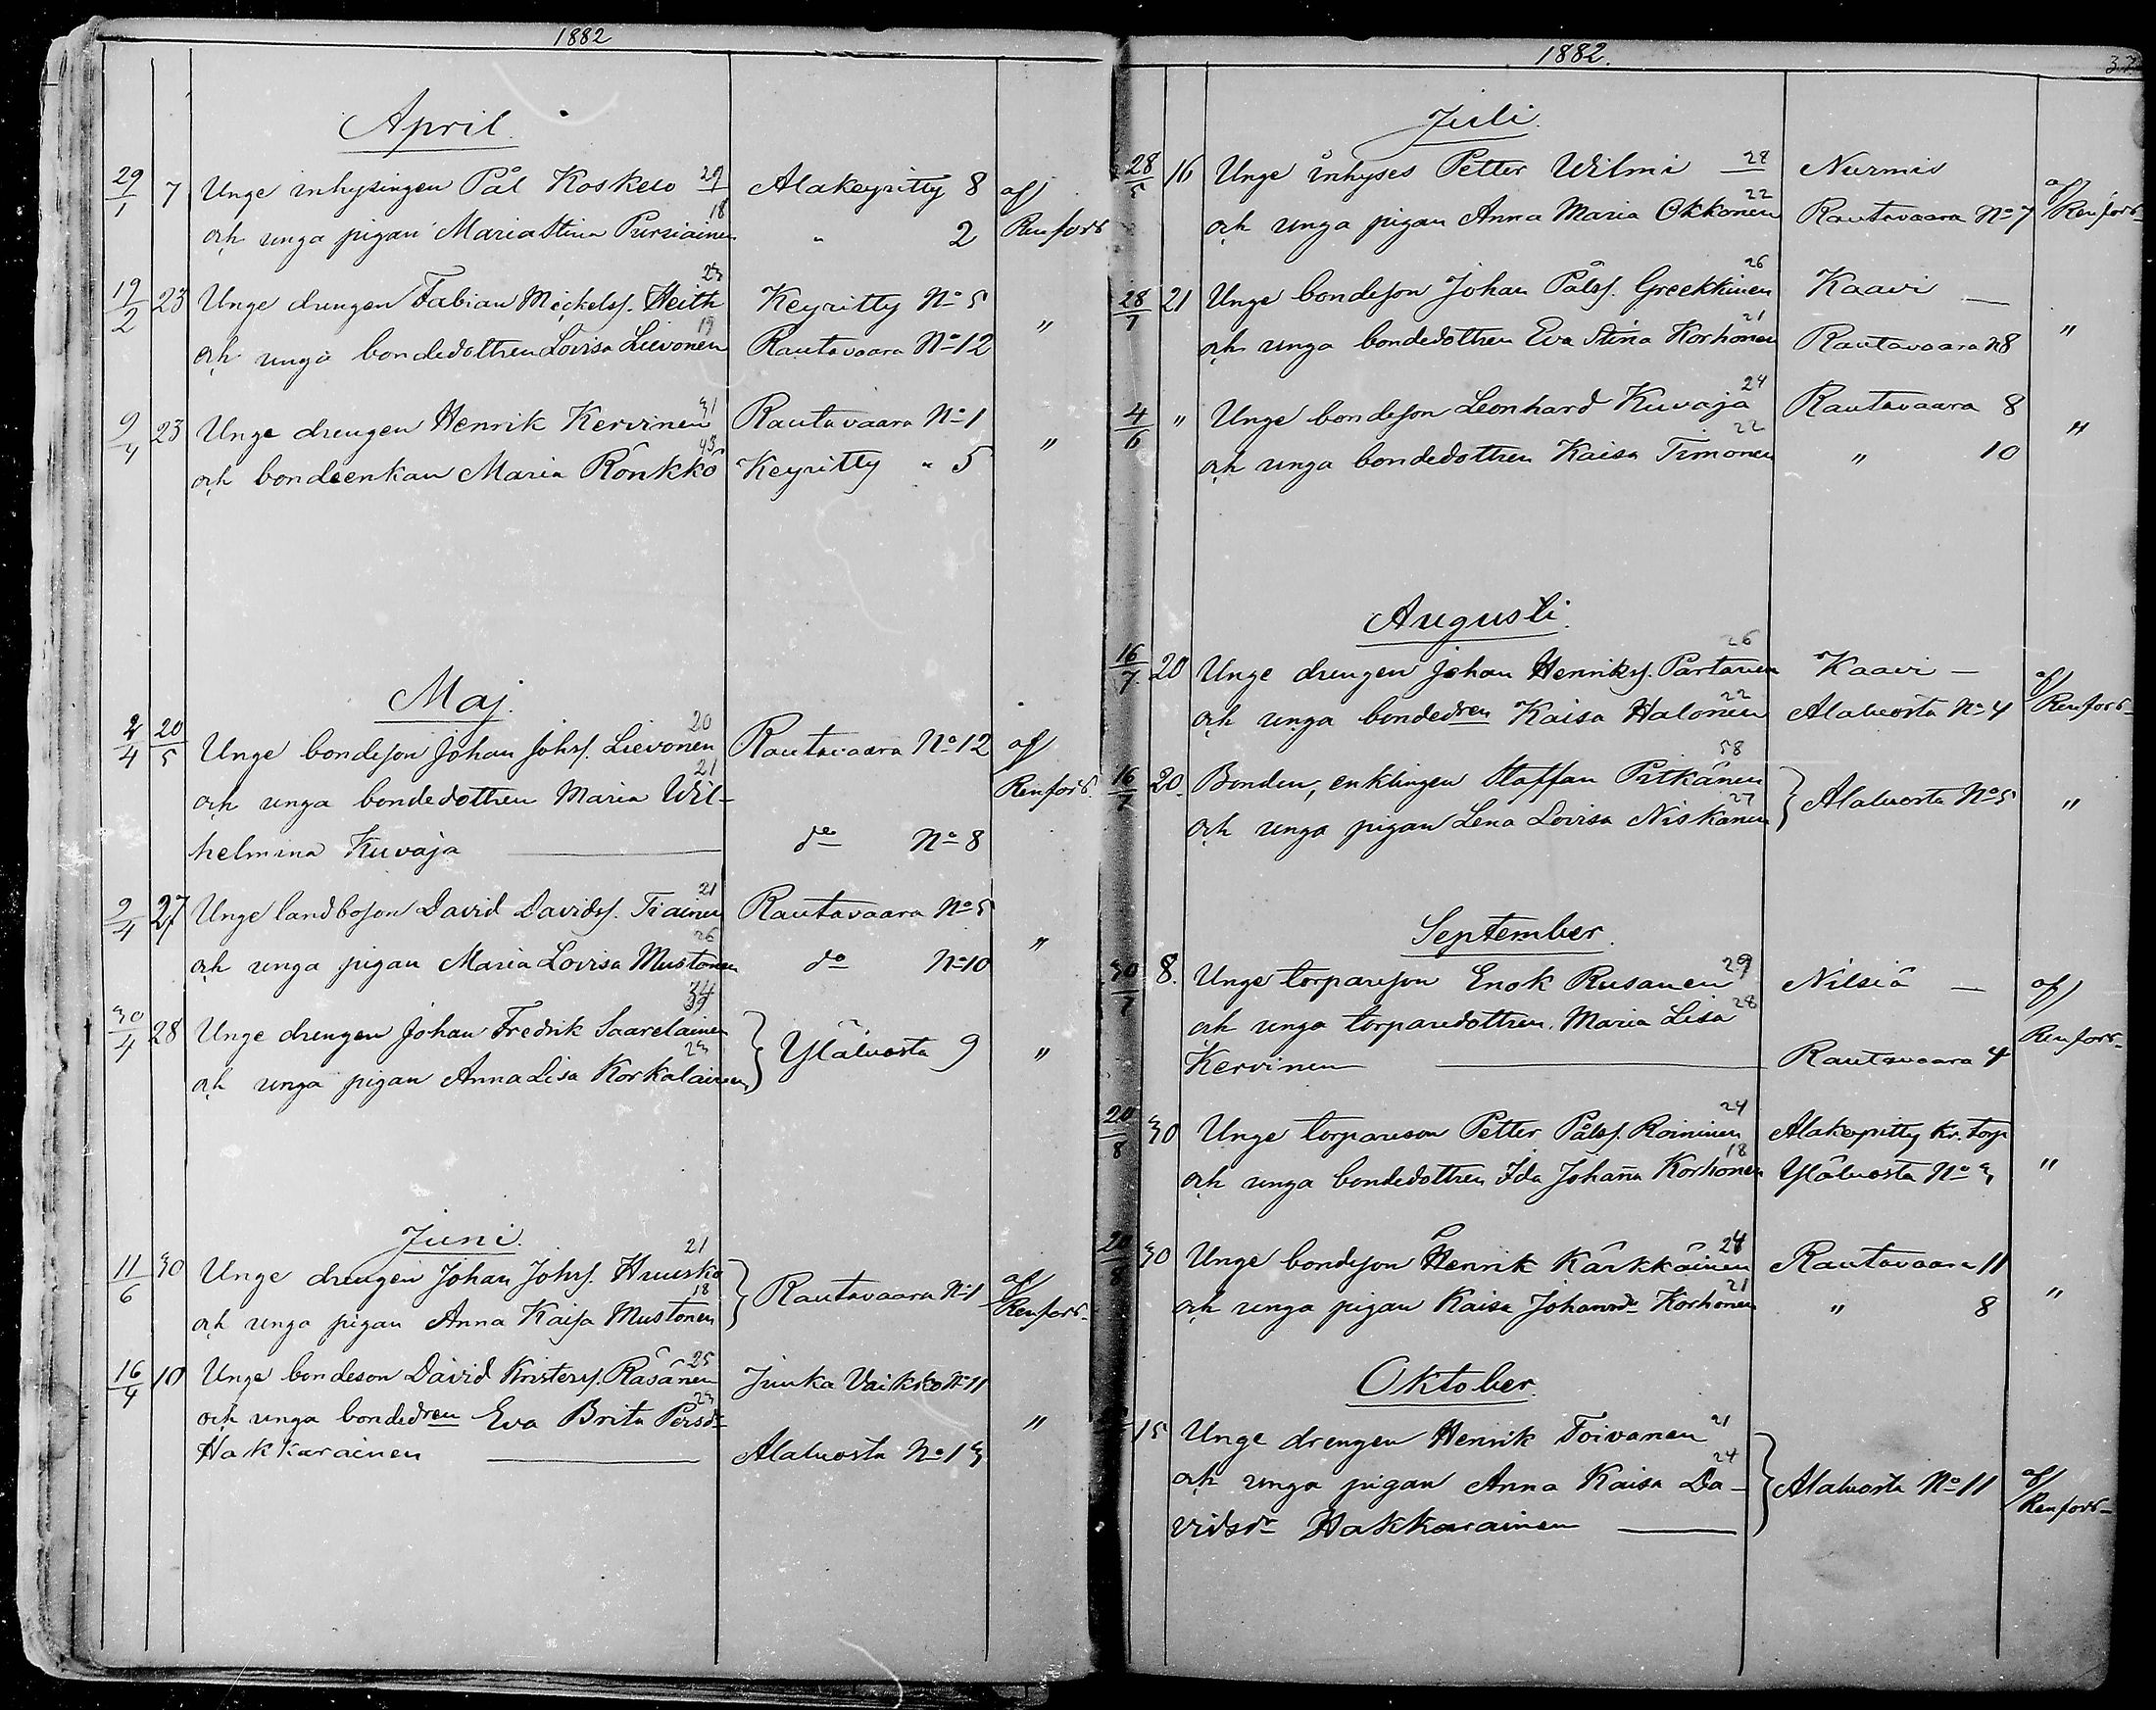 1882
April.
29/1 7 Unge inhysingen Pål Koskelo 29 Alakeyritty 8 af
och unga pigan Maria Stina Pursiainen 18 " 2 Renfors
19/2 23 Unge drengen Fabian Mickelss. Heith 23 Keyritty No 5
och unga bondedottren Lovisa Lievonen 19 Rautavaara No 12 "
9/4 23 Unge drengen Henrik Kervinen 31 Rautavaara No 1
och bondeenkan Maria Rönkkö 43 Keyritty " 5 "
Maj.
2/4 20/5 Unge bondeson Johan Johss. Lievonen 20 Rautavaara No 12 af
och unga bondedottren Maria Wil- 21 Renfors.
helmina Kuvaja — do No 8
9/4 27 Unge landboson David Davidss. Tiainen 21 Rautavaara No 5
och unga pigan Maria Lovisa Mustonen 26 do No 10 "
30/4 28 Unge drengen Johan Fredrik Saarelainen 34 Yläluosta 9 "
och unga pigan Anna Lisa Korkalainen 23
Juni.
11/6 30 Unge drengen Johan Johss. Huusko 21 Rautavaara No 1 af
och unga pigan Anna Kaisa Mustonen 18 Renfors
16/4 10 Unge bondeson David Kristerss. Räsänen 25 Juuka Vaikko No 11
och unga bondedren Eva Brita Persdr 23 "
Hakkarainen — Alaluosta No 13
1882. 37
Juli.
28/5 16 Unge inhyses Petter Wilmi — 28 Nurmis af
och unga pigan Anna Maria Okkonen 22 Rautavaara No 7 Renfors
28/7 21 Unge bondeson Johan Pålss. Greekkinen 26 Kaavi —
och unga bondedottren Eva Stina Korhonen 21 Rautavaara N 8 "
4/6 " Unge bondeson Leonhard Kuvaja 24 Rautavaara 8
och unga bondedottren Kaisa Timonen 22 " 10 "
Augusti.
16/7 20 Unge drengen Johan Henrikss. Partanen 26 Kaavi — af
och unga bondedren Kaisa Halonen 22 Alaluosta No 4 Renfors
16/7 20. Bonden, enklingen Staffan Pitkänen 58 Alaluosta No 5 "
och unga pigan Lena Lovisa Niskanen 27
September.
30/7 8. Unge torpareson Enok Rusanen 29 Nilsiä — af
och unga torparedottren Maria Lisa 28 Renfors
Kervinen — Rautavaara 4
20/8 30 Unge torpareson Petter Pålss. Roininen 24 Alakeyritty Kr. torp
och unga bondedottren Ida Johana Korhonen 18 Yläluosta No 3 "
20/8 30 Unge bondeson Henrik Kärkkäinen 24 Rautavaara 11
och unga pigan Kaisa Johansdr Korhonen 21 " 8 "
Oktober.
15 Unge drengen Henrik Toivanen 21
och unga pigan Anna Kaisa Da- 24 Alaluosta No 11 af
vidsdr Hakkarainen — Renfors